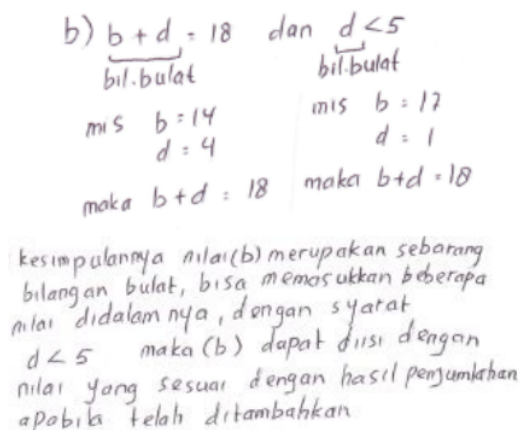 b) b + d = 18 dan d < 5
bil.bulat bil.bulat
mis b = 14 mis b = 17
d = 4 d = 1
maka b + d = 18 maka b+d = 18
kesimpulannya nilai (b) merupakan sebarang
bilangan bulat, bisa memasukkan beberapa
nilai didalamnya, dengan syarat
d < 5 maka (b) dapat diisi dengan
nilai yang sesuai dengan hasil penjumlahan
apabila telah ditambahkan